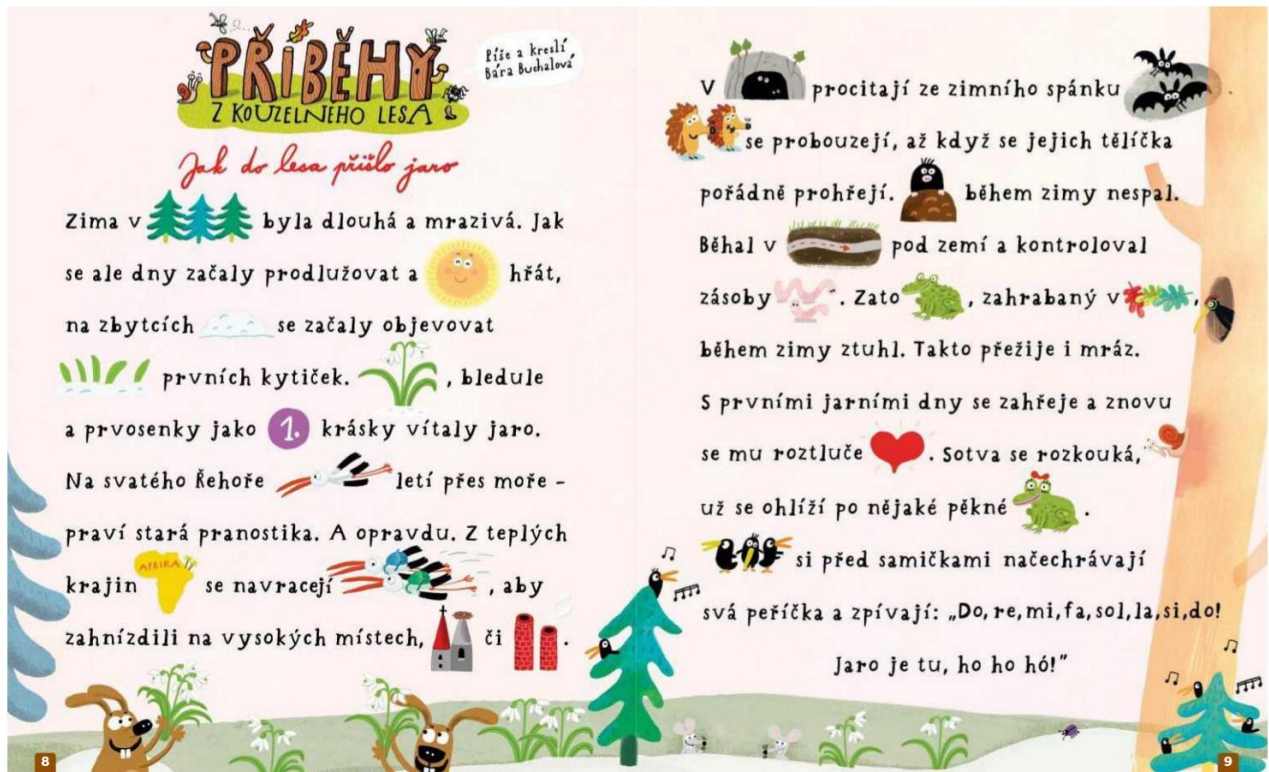 PŘÍBĚHY
Z KOUZELNÉHO LESA
Píše a kreslí
Bára Buchalová
Jak do lesa přišlo jaro
Zima v byla dlouhá a mrazivá. Jak
se ale dny začaly prodlužovat a hřát,
na zbytcích se začaly objevovat
prvních kytiček. , bledule
a prvosenky jako 1. krásky vítaly jaro.
Na svatého Řehoře letí přes moře –
praví stará pranostika. A opravdu. Z teplých
krajin AFRIKA se navracejí , aby
zahnízdili na vysokých místech, či .
8
V procitají ze zimního spánku .
se probouzejí, až když se jejich tělíčka
pořádně prohřejí. během zimy nespal.
Běhal v pod zemí a kontroloval
zásoby . Zato , zahrabaný v ,
během zimy ztuhl. Takto přežije i mráz.
S prvními jarními dny se zahřeje a znovu
se mu roztluče . Sotva se rozkouká,
už se ohlíží po nějaké pěkné .
si před samičkami načechrávají
svá peříčka a zpívají: „Do, re, mi, fa, sol, la, si, do!
Jaro je tu, ho ho hó!"
9